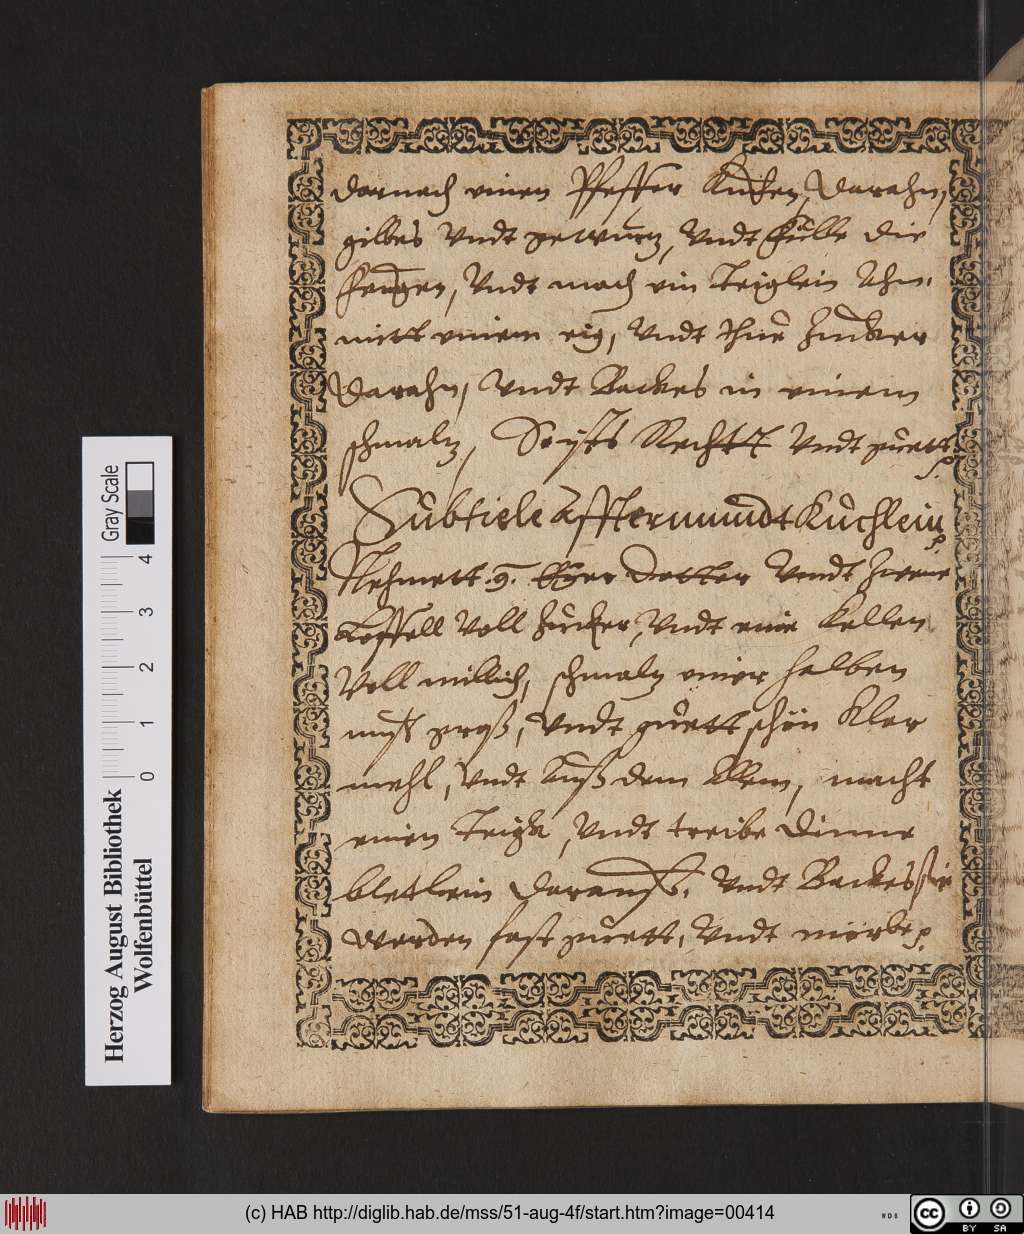 darnach einen Pfeffer Kuchen, Darahn,
gilbes Vndt gewürtz, Vndt fülle die
feigen, Vndt mach ein Teiglein Ahn.
mitt einem eig, Vndt thue Zucker
Darahn, Vndt Backes in einem
schmaltz, So ists Rechtt Vndt guett
Subtiele Affftermundt Küchlein
Nehmett .9. Eÿer Dotter Vndt zweene
Löffell Voll Zucker, Vndt eine kellen
Voll millich, schmaltz einer halben
nuß groß, Vndt guett schön klar
mehl, Vndt Auß dem Allem, macht
einen Teigk, Vndt treibe Dinne
bletlein darauß, Vndt Backes sie
werden fast guett, Vndt mürbe
Herzog August Bibliothek
Wolfenbüttel
Gray Scale
0 1 2 3 4
(c) HAB http://diglib.hab.de/mss/51-aug-4f/start.htm?image=00414
WDB
cc
BY SA